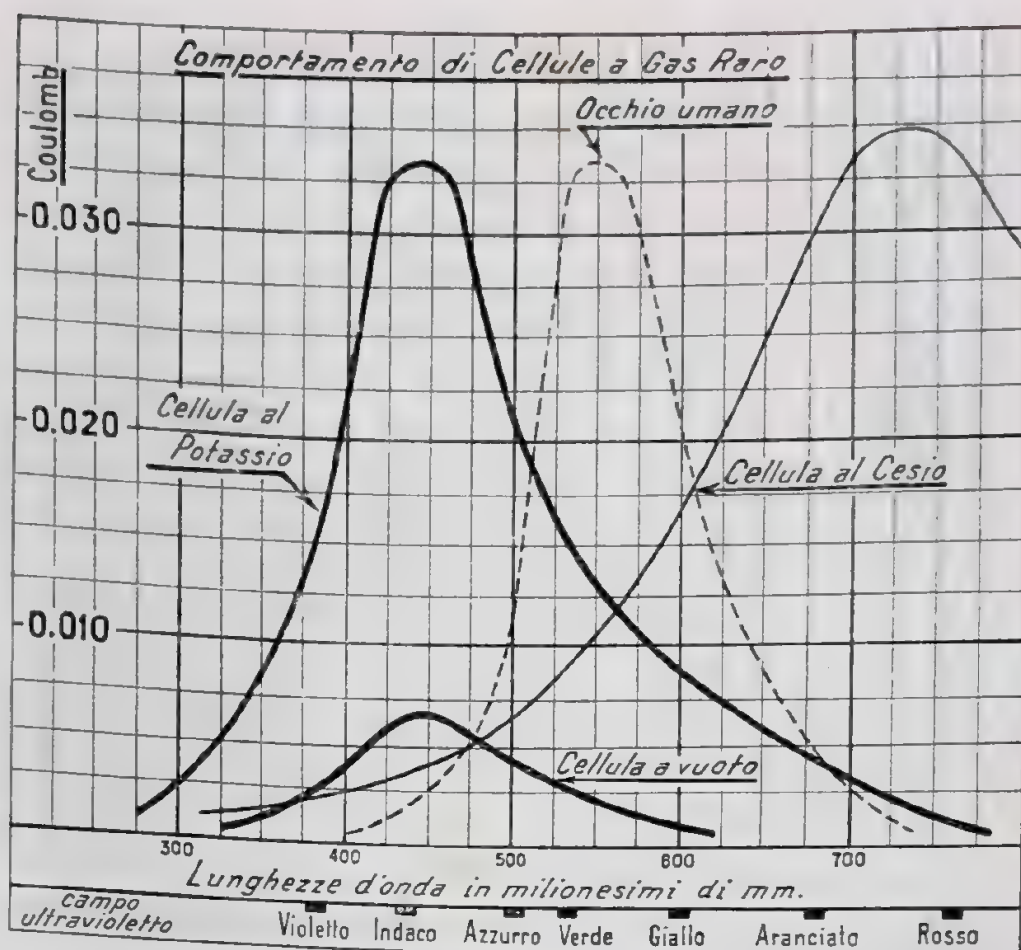 Comportamento di Cellule a Gas Raro
Coulomb
Occhio umano
0.030
0.020
0.010
Cellula al
Potassio
Cellula al Cesio
Cellula a vuoto
300 400 500 600 700
Lunghezze d'onda in milionesimi di mm.
campo
ultravioletto
Violetto Indaco Azzurro Verde Giallo Aranciato Rosso